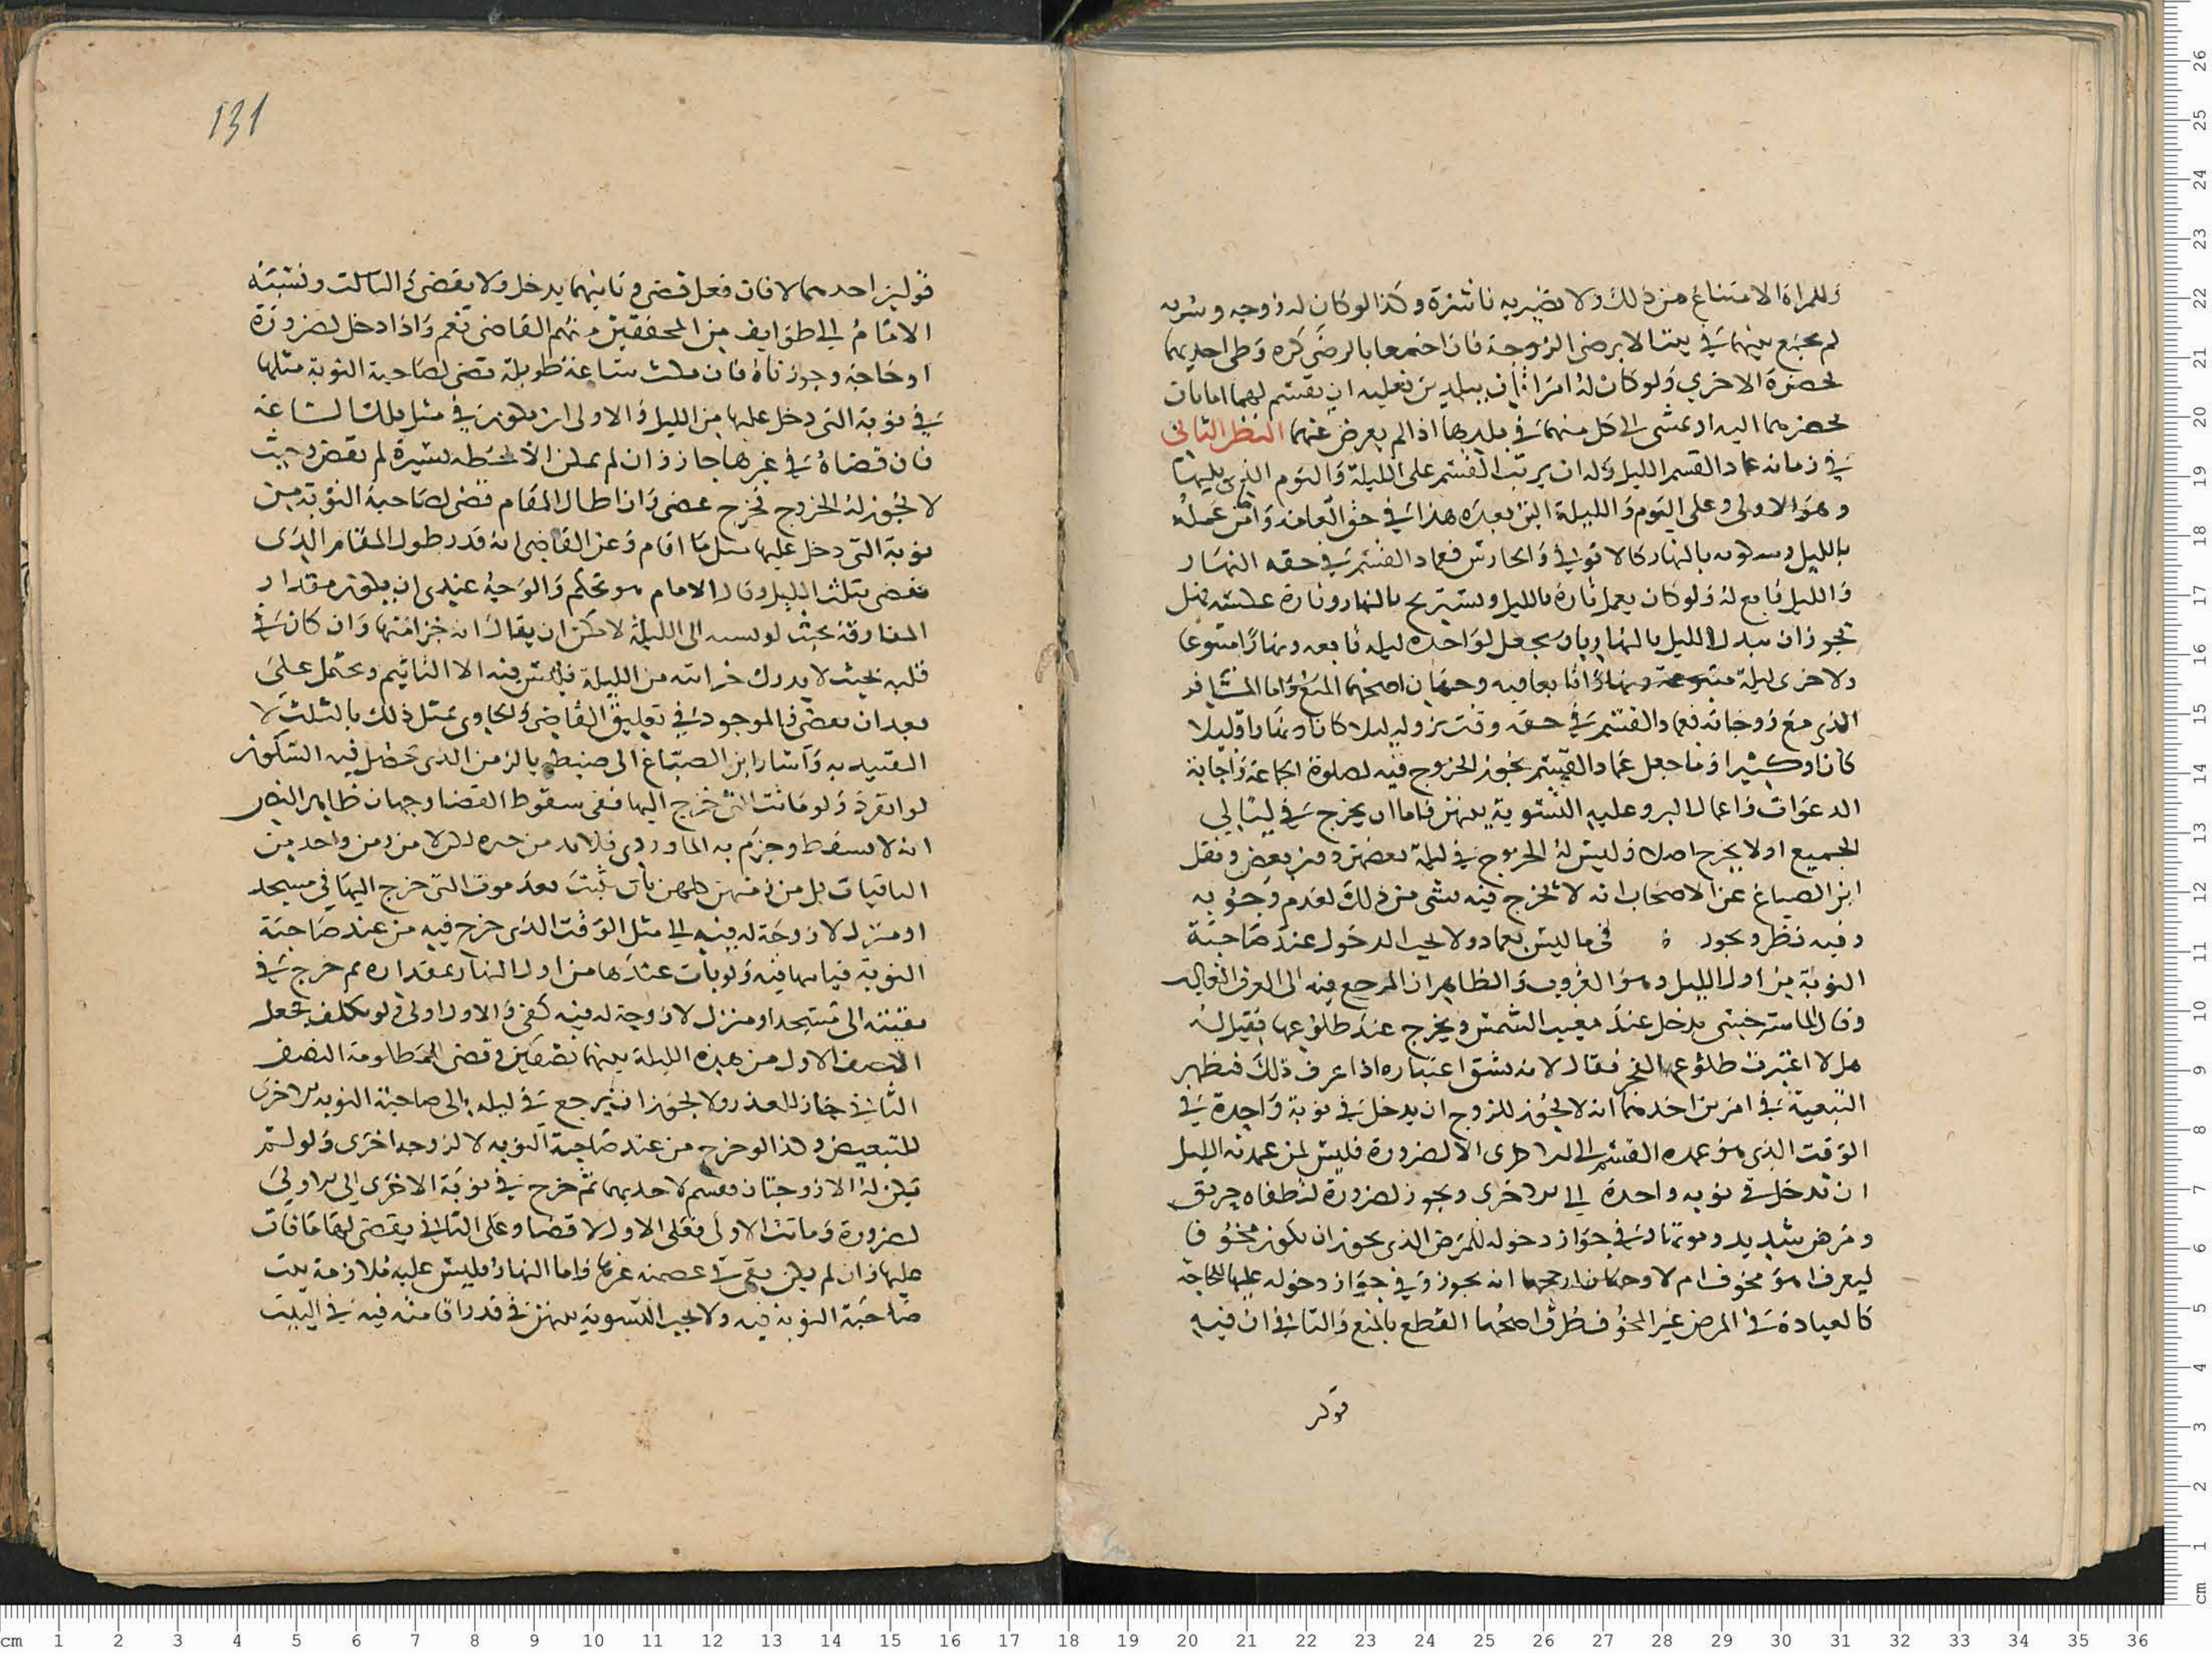 وللمراة الامتناع من ذلك ولا تصير به ناشزة وكذا لو كان له زوجة وسرية
لم يجمع بينهما في بيت الا برضى الزوجة فان اجتمعا بالرضى كره وطى احديهما
بحضرة الاخرى ولو كان له امراتان ببلدين فعليه ان يقسم لهما اما بان
يحضرهما اليه او يمشى الى كل منهما في بلدها اذا لم يعرض عنهما النظر الثاني
في زمانه عماد القسم الليل وله ان يرتب القسم على الليلة واليوم الذي يليها
وهو الاولى وعلى اليوم والليلة التي بعده هذا في حق العامة وامّا من عمله
بالليل وسكونه بالنهار كالاتوني والحارس فعماد القسم في حقه النهار
والليل تابع له ولو كان يعمل تارة بالليل ويستريح بالنهار وتارة عكسه فهل
يجوز ان يبدل الليل بالنهار بان يجعل لواحدة ليلة تابعة ونهارا متبوعا
ولاخرى ليلة متبوعة ونهارا تابعا فيه وجهان اصحهما المنع واما المسافر
الذي مع زوجاته فعماد القسم في حقه وقت نزوله ليلا كان او نهارا قليلا
كان او كثيرا وما جعل عماد القسم يجوز الخروج فيه لصلوة الجماعة واجابة
الدعوات واعمال البر وعليه التسوية بينهن فاما ان يخرج في ليالي
الجميع او لا يخرج اصلا وليس له الخروج في ليلة بعضهن دون بعض ونقل
ابن الصباغ عن الاصحاب انه لا يخرج فيه لشى من ذلك لعدم وجوبه
وفيه نظر ويجوز في ما ليس بعماد ولا يجب الدخول عند صاحبة
النوبة من اول الليل وهو الغروب والظاهر ان المرجع فيه الى العرف الغالب
وقال الماسرخسي يدخل عند مغيب الشمس ويخرج عند طلوعها فقيل له
هلا اعتبرت طلوع الفجر فقال لانه يشق اعتباره اذا عرف ذلك فتظهر
التبعية في امرين احدهما انه لا يجوز للزوج ان يدخل في نوبة واحدة في
الوقت الذي هو عمدة القسم الى الاخرى الا لضرورة فليس لمن عمدته الليل
ان يدخل في نوبة واحدة الى الاخرى ويجوز لضرورة كاطفاء حريق
ومرض شديد وموت وفي جواز دخوله للمرض الذي يجوز ان يكون مخوفا
ليعرف اهو مخوف ام لا وجهان ارجحهما انه يجوز وفي جواز دخوله عليها للحاجة
كالعيادة في المرض غير المخوف طرق اصحهما القطع بالمنع والثاني ان فيه
قولين
131
قولين احدهما لا فان فعل قضى وثانيهما يدخل ولا يقضى والثالث ونسبته
الامام الى طوايف من المحققين منهم القاضى نعم واذا دخل لضرورة
او حاجة وجوزناه فان مكث ساعة طويلة قضى لصاحبة النوبة مثلها
في نوبة التي دخل عليها من الليل والاولى ان يكون في مثل تلك الساعة
فان قضاه في غيرها جاز وان لم يمكث الا لحظة يسيرة لم يقض وحيث
لا يجوز له الخروج فخرج عصى وان طال المقام قضى لصاحبة النوبة من
نوبة التي دخل عليها مثل ما اقام وعن القاضى انه قدر طول المقام الذي
يقضى بثلث الليل وقال الامام هو تحكم والوجه عندي ان يكون مقدار
المفارقة بحيث لو نسبه الى الليلة لامكن ان يقال انه جزء منها وان كان في
قلبه بحيث لا يدرك جزايته من الليلة فليس فيه الا التاثيم ويحتمل على
بعد ان يقضى والموجود في تعليق القاضى والحاوي تمثل ذلك بالثلث لا
التقييد به واشار ابن الصباغ الى ضبطه بالزمن الذي تحصل فيه السكون
لو انفرد ولو ماتت التي خرج اليها ففي سقوط القضا وجهان ظاهر النص
انه لا يسقط وجزم به الماوردي فلابد من جبره لكن لا من زمن واحدة من
الباقيات بل من زمنهن كلهن بان يثبت بعد موت التي خرج اليها في مسجد
او منزل لا زوجة له فيه الى مثل الوقت الذي خرج فيه من عند صاحبة
النوبة فيا ساقيه ولو بات عندها من اول النهار بمقداره ثم خرج في
بقيته الى مسجد او منزل لا زوجة له فيه كفى والاول اولى فلو كلف يجعل
النصف الاول من هذه الليلة بينهما نصفين وقضى المظلومة النصف
الثاني جاز للعذر ولا يجوز ان يرجع في ليله الى صاحبة النوبة الاخرى
للتبعيض وكذا لو خرج من عند صاحبة النوبة لا لزوجة اخرى ولو لم
يكن له الا زوجتان فقسم لاحديهما ثم خرج في نوبة الاخرى الى الاولى
لضرورة وماتت الاولى فعلى الاول لا قضا وعلى الثاني يقضى لها ما فات
عليها وان لم يكن بقى في عصمته غيرها واما النهار فليس عليه ملازمة بيت
صاحبة النوبة فيه ولا يجب التسوية بينهن في قدر اقامته فيه في البيت